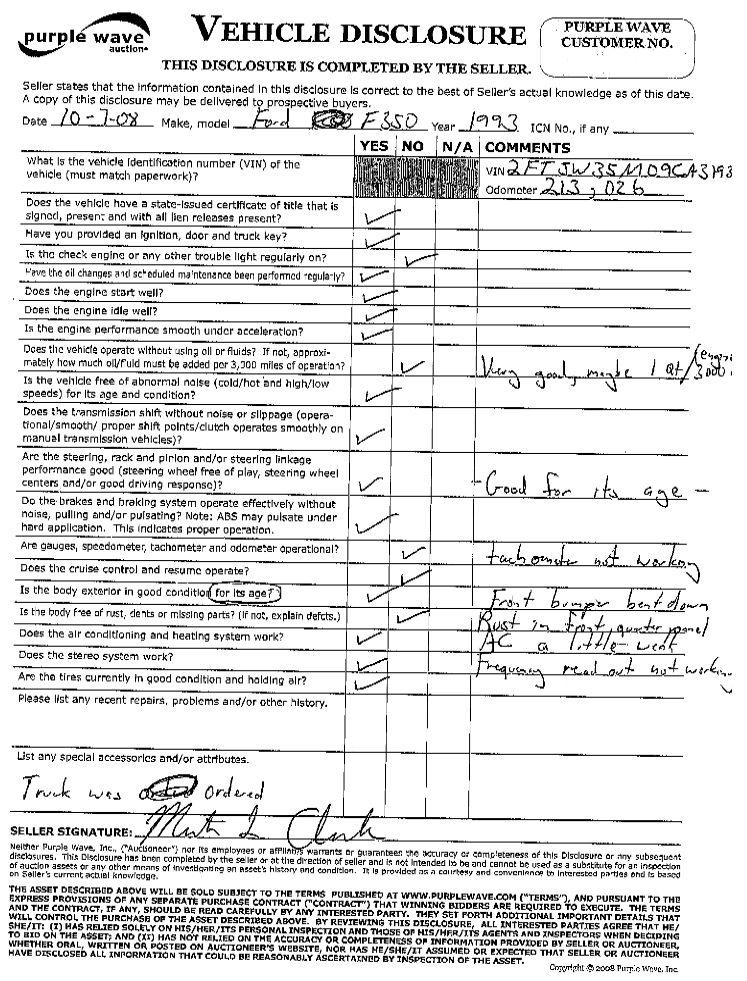 purple wave
auction
VEHICLE DISCLOSURE
PURPLE WAVE
CUSTOMER NO.
THIS DISCLOSURE IS COMPLETED BY THE SELLER.
Seller states that the information contained in this disclosure is correct to the best of Seller's actual knowledge as of this date.
A copy of this disclosure may be delivered to prospective buyers.
Date 10-7-08 Make, model Ford F350 Year 1993 ICN No., if any
YES NO N/A COMMENTS
What is the vehicle identification number (VIN) of the
vehicle (must match paperwork)?
VIN 2FTJW35M09CA3193
Odometer 213,026
Does the vehicle have a state-issued certificate of title that is
signed, present and with all lien releases present?
Have you provided an ignition, door and truck key?
Is the check engine or any other trouble light regularly on?
Have the oil changes and scheduled maintenance been performed regularly?
Does the engine start well?
Does the engine idle well?
Is the engine performance smooth under acceleration?
Does the vehicle operate without using oil or fluids? If not, approxi-
mately how much oil/fluid must be added per 3,000 miles of operation?
Very good, maybe 1 qt/3000
Is the vehicle free of abnormal noise (cold/hot and high/low
speeds) for its age and condition?
Does the transmission shift without noise or slippage (opera-
tional/smooth/ proper shift points/clutch operates smoothly on
manual transmission vehicles)?
Are the steering, rack and pinion and/or steering linkage
performance good (steering wheel free of play, steering wheel
centers and/or good driving response)?
- Good for its age -
Do the brakes and braking system operate effectively without
noise, pulling and/or pulsating? Note: ABS may pulsate under
hard application. This indicates proper operation.
Are gauges, speedometer, tachometer and odometer operational?
tachometer not working
Does the cruise control and resume operate?
Is the body exterior in good condition for its age?
Front bumper bent down
Is the body free of rust, dents or missing parts? (if not, explain defcts.)
Rust in front quarter panel
Does the air conditioning and heating system work?
AC a little weak
Does the stereo system work?
Frequency read out not working
Are the tires currently in good condition and holding air?
Please list any recent repairs, problems and/or other history.
List any special accessories and/or attributes.
Truck was ordered
SELLER SIGNATURE:
Neither Purple Wave, Inc., ("Auctioneer") nor its employees or affiliates warrants or guarantees the accuracy or completeness of this Disclosure or any subsequent
disclosures. This Disclosure has been completed by the seller or at the direction of seller and is not intended to be and cannot be used as a substitute for an inspection
of auction assets or any other means of investigating an asset's history and condition. It is provided as a courtesy and convenience to interested parties and is based
on Seller's current actual knowledge.
THE ASSET DESCRIBED ABOVE WILL BE SOLD SUBJECT TO THE TERMS PUBLISHED AT WWW.PURPLEWAVE.COM ("TERMS"), AND PURSUANT TO THE
EXPRESS PROVISIONS OF ANY SEPARATE PURCHASE CONTRACT ("CONTRACT") THAT WINNING BIDDERS ARE REQUIRED TO EXECUTE. THE TERMS
AND THE CONTRACT, IF ANY, SHOULD BE READ CAREFULLY BY ANY INTERESTED PARTY. THEY SET FORTH ADDITIONAL IMPORTANT DETAILS THAT
WILL CONTROL THE PURCHASE OF THE ASSET DESCRIBED ABOVE. BY REVIEWING THIS DISCLOSURE, ALL INTERESTED PARTIES AGREE THAT HE/
SHE/IT: (I) HAS RELIED SOLELY ON HIS/HER/ITS PERSONAL INSPECTION AND THOSE OF HIS/HER/ITS AGENTS AND INSPECTORS WHEN DECIDING
TO BID ON THE ASSET; AND (II) HAS NOT RELIED ON THE ACCURACY OR COMPLETENESS OF INFORMATION PROVIDED BY SELLER OR AUCTIONEER,
WHETHER ORAL, WRITTEN OR POSTED ON AUCTIONEER'S WEBSITE, NOR HAS HE/SHE/IT ASSUMED OR EXPECTED THAT SELLER OR AUCTIONEER
HAVE DISCLOSED ALL INFORMATION THAT COULD BE REASONABLY ASCERTAINED BY INSPECTION OF THE ASSET.
Copyright © 2008 Purple Wave, Inc.